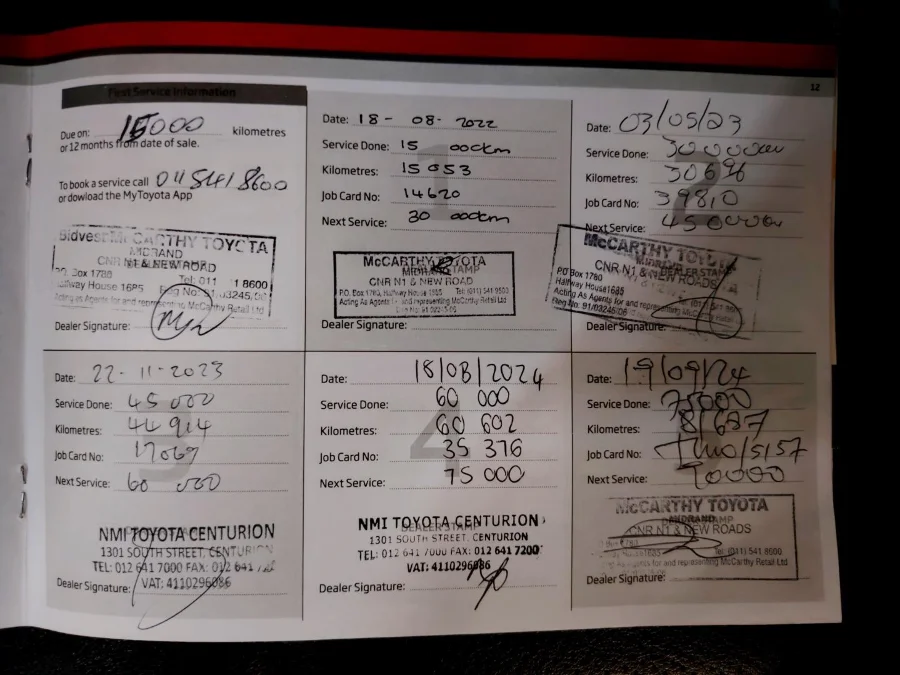 12
First Service Information
Due on: 15000 kilometres
or 12 months from date of sale.
To book a service call 011 541 8600
or dowload the MyToyota App
Bidvest McCARTHY TOYOTA
MIDRAND
CNR N1 & NEW ROAD
P.O. Box 1780 Tel: 011 8600
Halfway House 1685 Reg No: 91/03245/06
Acting as Agents for and representing McCarthy Retail Ltd
Dealer Signature:
Date: 18 - 08 - 2022
Service Done: 15 000km
Kilometres: 15 053
Job Card No: 14620
Next Service: 30 000km
1
McCARTHY TOYOTA
MIDRAND
CNR N1 & NEW ROAD
P.O. Box 1780, Halfway House 1685 Tel: (011) 541-8600
Acting As Agents for and representing McCarthy Retail Ltd
Dealer Signature:
Date: 03/05/23
Service Done: 30000km
Kilometres: 30696
Job Card No: 39810
Next Service: 45000km
2
McCARTHY TOYOTA
MIDRAND
DEALER STAMP
CNR N1 & NEW ROADS
PO Box 1780
Halfway House 1685
Acting As Agents for and representing McCarthy Retail
Reg No. 91/03245/06
Dealer Signature:
Date: 22 - 11 - 2023
Service Done: 45 000
Kilometres: 44 914
Job Card No: 17069
Next Service: 60 000
3
NMI TOYOTA CENTURION
1301 SOUTH STREET, CENTURION
TEL: 012 641 7000 FAX: 012 641
VAT: 4110296086
Dealer Signature:
Date: 18/08/2024
Service Done: 60 000
Kilometres: 60 602
Job Card No: 35 376
Next Service: 75 000
4
NMI TOYOTA CENTURION
DEALER STAMP
1301 SOUTH STREET, CENTURION
TEL: 012 641 7000 FAX: 012 641 7200
VAT: 4110296086
Dealer Signature:
Date: 19/09/24
Service Done: 75000
Kilometres: 81687
Job Card No:
Next Service: 90000
McCARTHY TOYOTA
MIDRAND
CNR N1 & NEW ROADS
Tel: (011) 541 8600
As Agents for and representing McCarthy Retail Ltd
Dealer Signature: